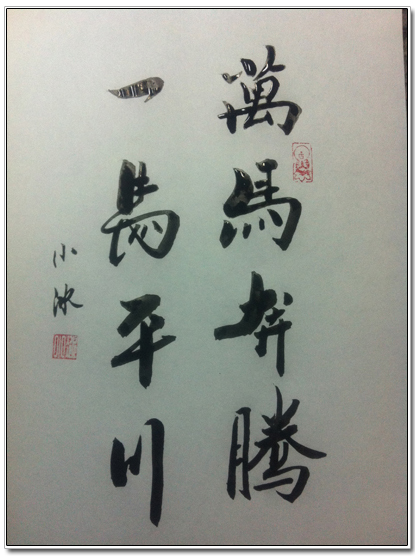 萬馬奔騰
一馬平川
小冰